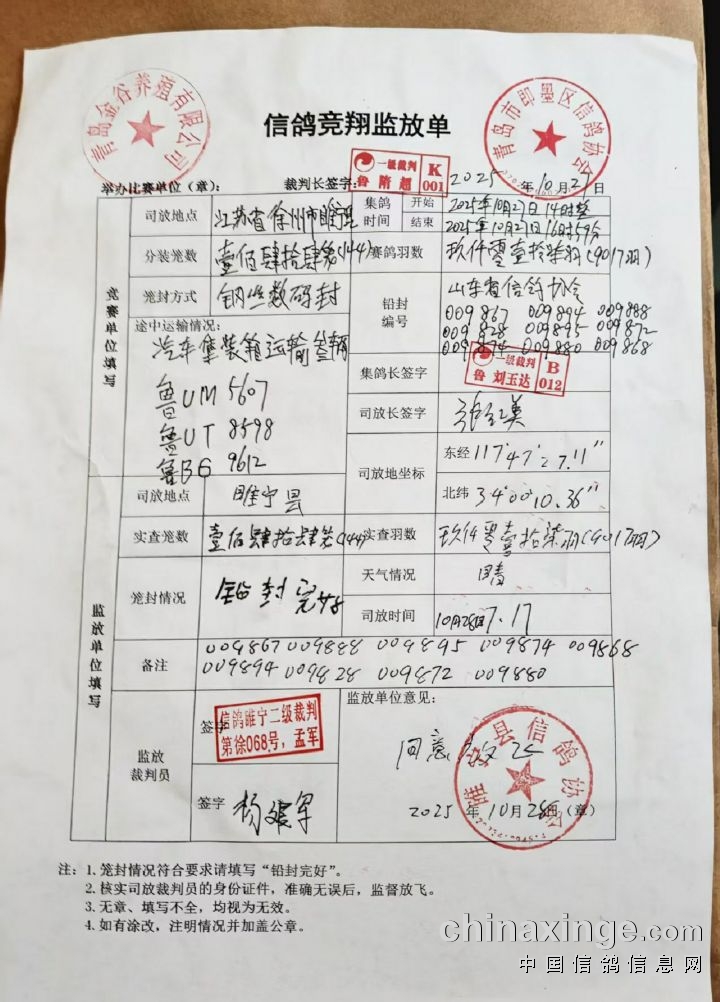 信鸽竞翔监放单
青岛金谷养殖有限公司
青岛市即墨区信鸽协会
举办比赛单位（章）：
裁判长签字：
一级裁判 K
鲁 隋超 001
2025年10月27日
竞赛单位填写
司放地点 江苏省徐州市睢宁县
集鸽时间 开始 2025年10月27日14时整
结束 2025年10月27日16时59分
分装笼数 壹佰肆拾肆笼(144)
赛鸽羽数 玖仟零壹拾柒羽(9017羽)
笼封方式 钢丝数码封
铅封编号 山东省信鸽协会
009867 009894 009888
009828 009895 009872
009874 009880 009868
途中运输情况：
汽车集装箱运输叁辆
鲁UM 5607
鲁UT 8598
鲁BG 9612
集鸽长签字
一级裁判 B
鲁 刘玉达 012
司放长签字
司放地坐标 东经 117°47′27.11″
北纬 34°00′10.36″
监放单位填写
司放地点 睢宁县
实查笼数 壹佰肆拾肆笼(144)
实查羽数 玖仟零壹拾柒羽(9017羽)
笼封情况 铅封完好
天气情况 晴
司放时间 10月28日7.17
备注 009867 009888 009895 009874 009868
009894 009828 009872 009880
监放裁判员
签字
信鸽睢宁二级裁判
第徐068号，孟军
签字 杨建军
监放单位意见：
同意放飞
睢宁县信鸽协会
2025年10月28日（章）
注：1.笼封情况符合要求请填写“铅封完好”。
2.核实司放裁判员的身份证件，准确无误后，监督放飞。
3.无章、填写不全，均视为无效。
4.如有涂改，注明情况并加盖公章。
chinaxinge.com
中国信鸽信息网